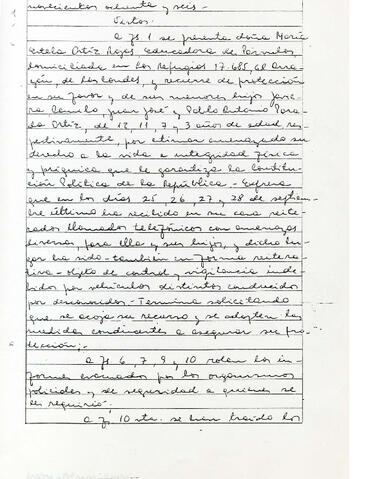 novecientos ochenta y seis.-
Vistos:
A fs 1 se presenta doña María
Estela Ortiz Rojas, educadora de Párvulos,
domiciliada en Los Refugios 17.685, El Arra-
yán, de Las Condes, y recurre de protección
en su favor y de sus menores hijos Javie-
ra, Camilo, Juan José y Pablo Antonio Para-
da Ortiz, de 12, 11, 7 y 3 años de edad, res-
pectivamente, por estimar amenazado su
derecho a la vida e integridad física
y psíquica que le garantiza la Constitu-
ción Política de la República.- Expresa
que en los días 25, 26, 27 y 28 de septiem-
bre último ha recibido en su casa reite-
rados llamados telefónicos con amenazas
diversas, para ella y sus hijos, y dicho lu-
gar ha sido - también en forma reitera-
tiva - objeto de control y vigilancia inde-
bidos por vehículos distintos conducidos
por desconocidos.- Termina solicitando
que se acoja su recurso y se adopten las
medidas conducentes a asegurar su pro-
tección;-
A fs 6, 7, 9 y 10 rolan los in-
formes evacuados por los organismos
policiales y de seguridad a quienes se
les requirió.
A fs 10 vta. se han traído los